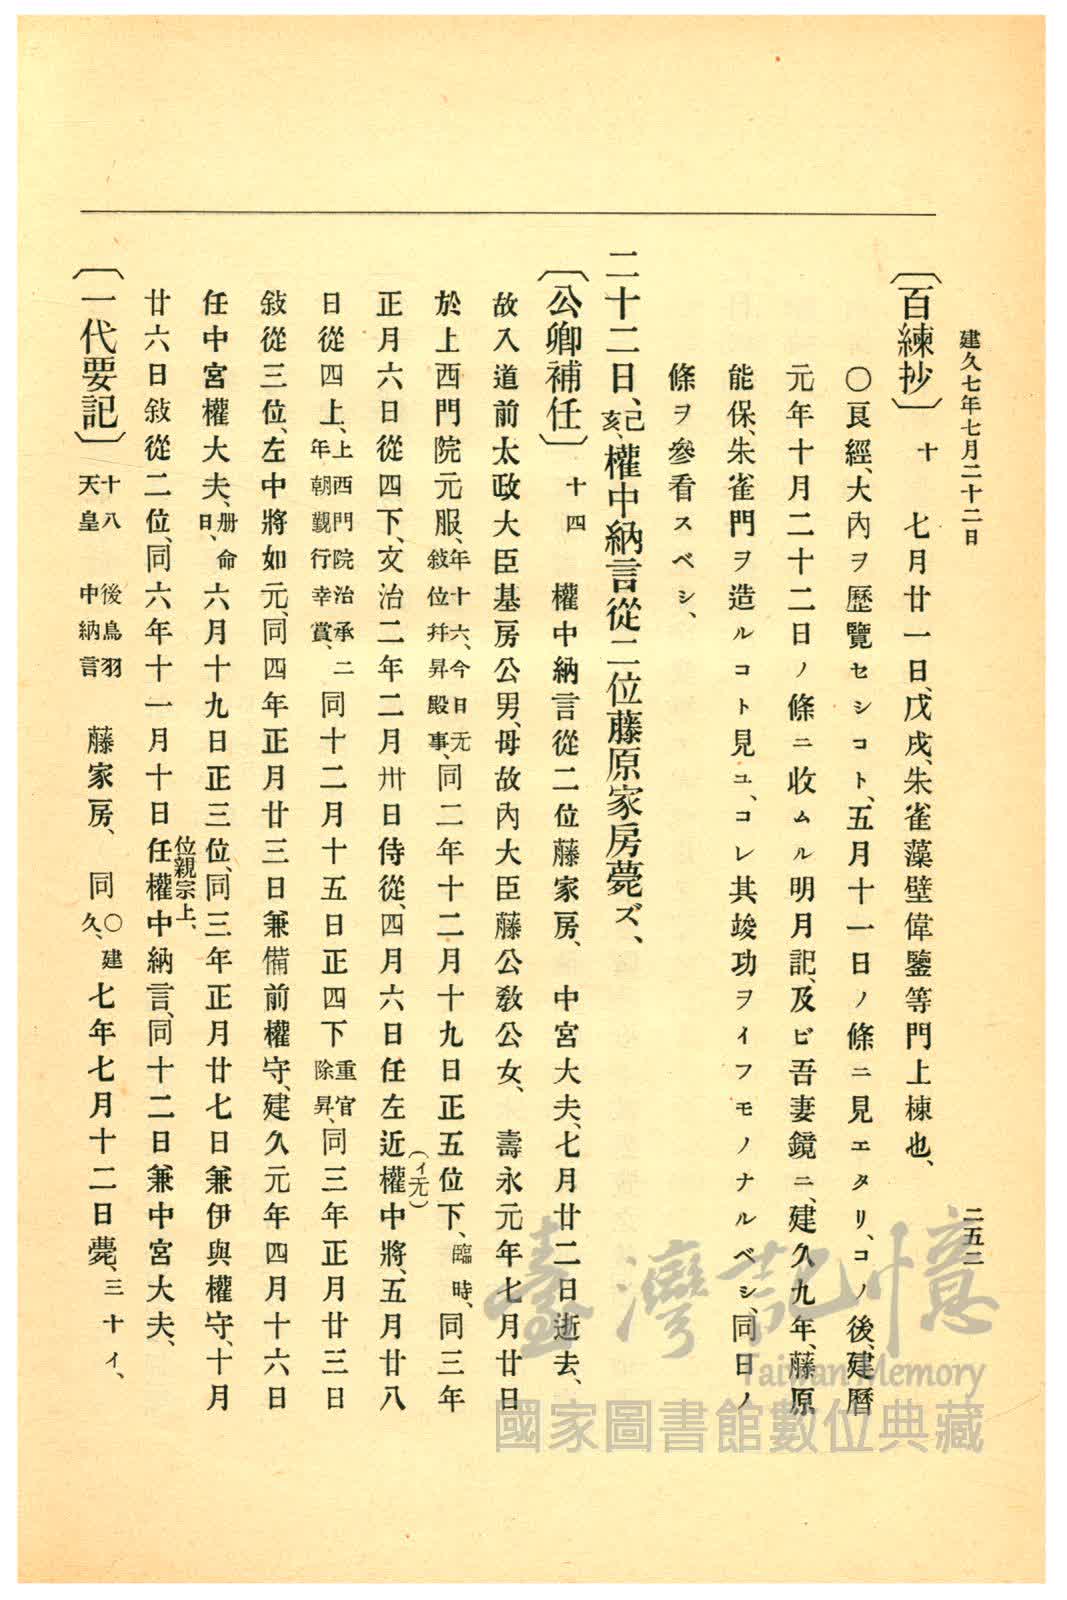 建久七年七月二十二日
二五二
〔百練抄〕十 七月廿一日、戊戌、朱雀藻壁偉鑒等門上棟也、
〇良經、大內ヲ歷覽セシコト、五月十一日ノ條ニ見エタリ、コノ後、建曆
元年十月二十二日ノ條ニ收ムル明月記、及ビ吾妻鏡ニ、建久九年、藤原
能保、朱雀門ヲ造ルコト見ユ、コレ其竣功ヲイフモノナルベシ、同日ノ
條ヲ參看スベシ、
二十二日、己亥、權中納言從二位藤原家房薨ズ、
〔公卿補任〕十四 權中納言從二位藤家房、中宮大夫、七月廿二日逝去、
故入道前太政大臣基房公男、母故內大臣藤公敎公女、壽永元年七月廿日
於上西門院元服、年十六、今日无敍位幷昇殿事、同二年十二月十九日正五位下、臨時、同三年
正月六日從四下、文治二年二月卅日侍從、四月六日任左近權(イ无)中將、五月廿八
日從四上、上西門院治承二年朝覲行幸賞、同十二月十五日正四下重官除昇、同三年正月廿三日
敍從三位、左中將如元、同四年正月廿三日兼備前權守、建久元年四月十六日
任中宮權大夫、册命日、六月十九日正三位、位親宗上、同三年正月廿七日兼伊與權守、十月
廿六日敍從二位、同六年十一月十日任權中納言、同十二日兼中宮大夫、
〔一代要記〕十八 後鳥羽天皇 中納言 藤家房、同〇建久、七年七月十二日薨、三十イ、
臺灣記憶
Taiwan Memory
國家圖書館數位典藏